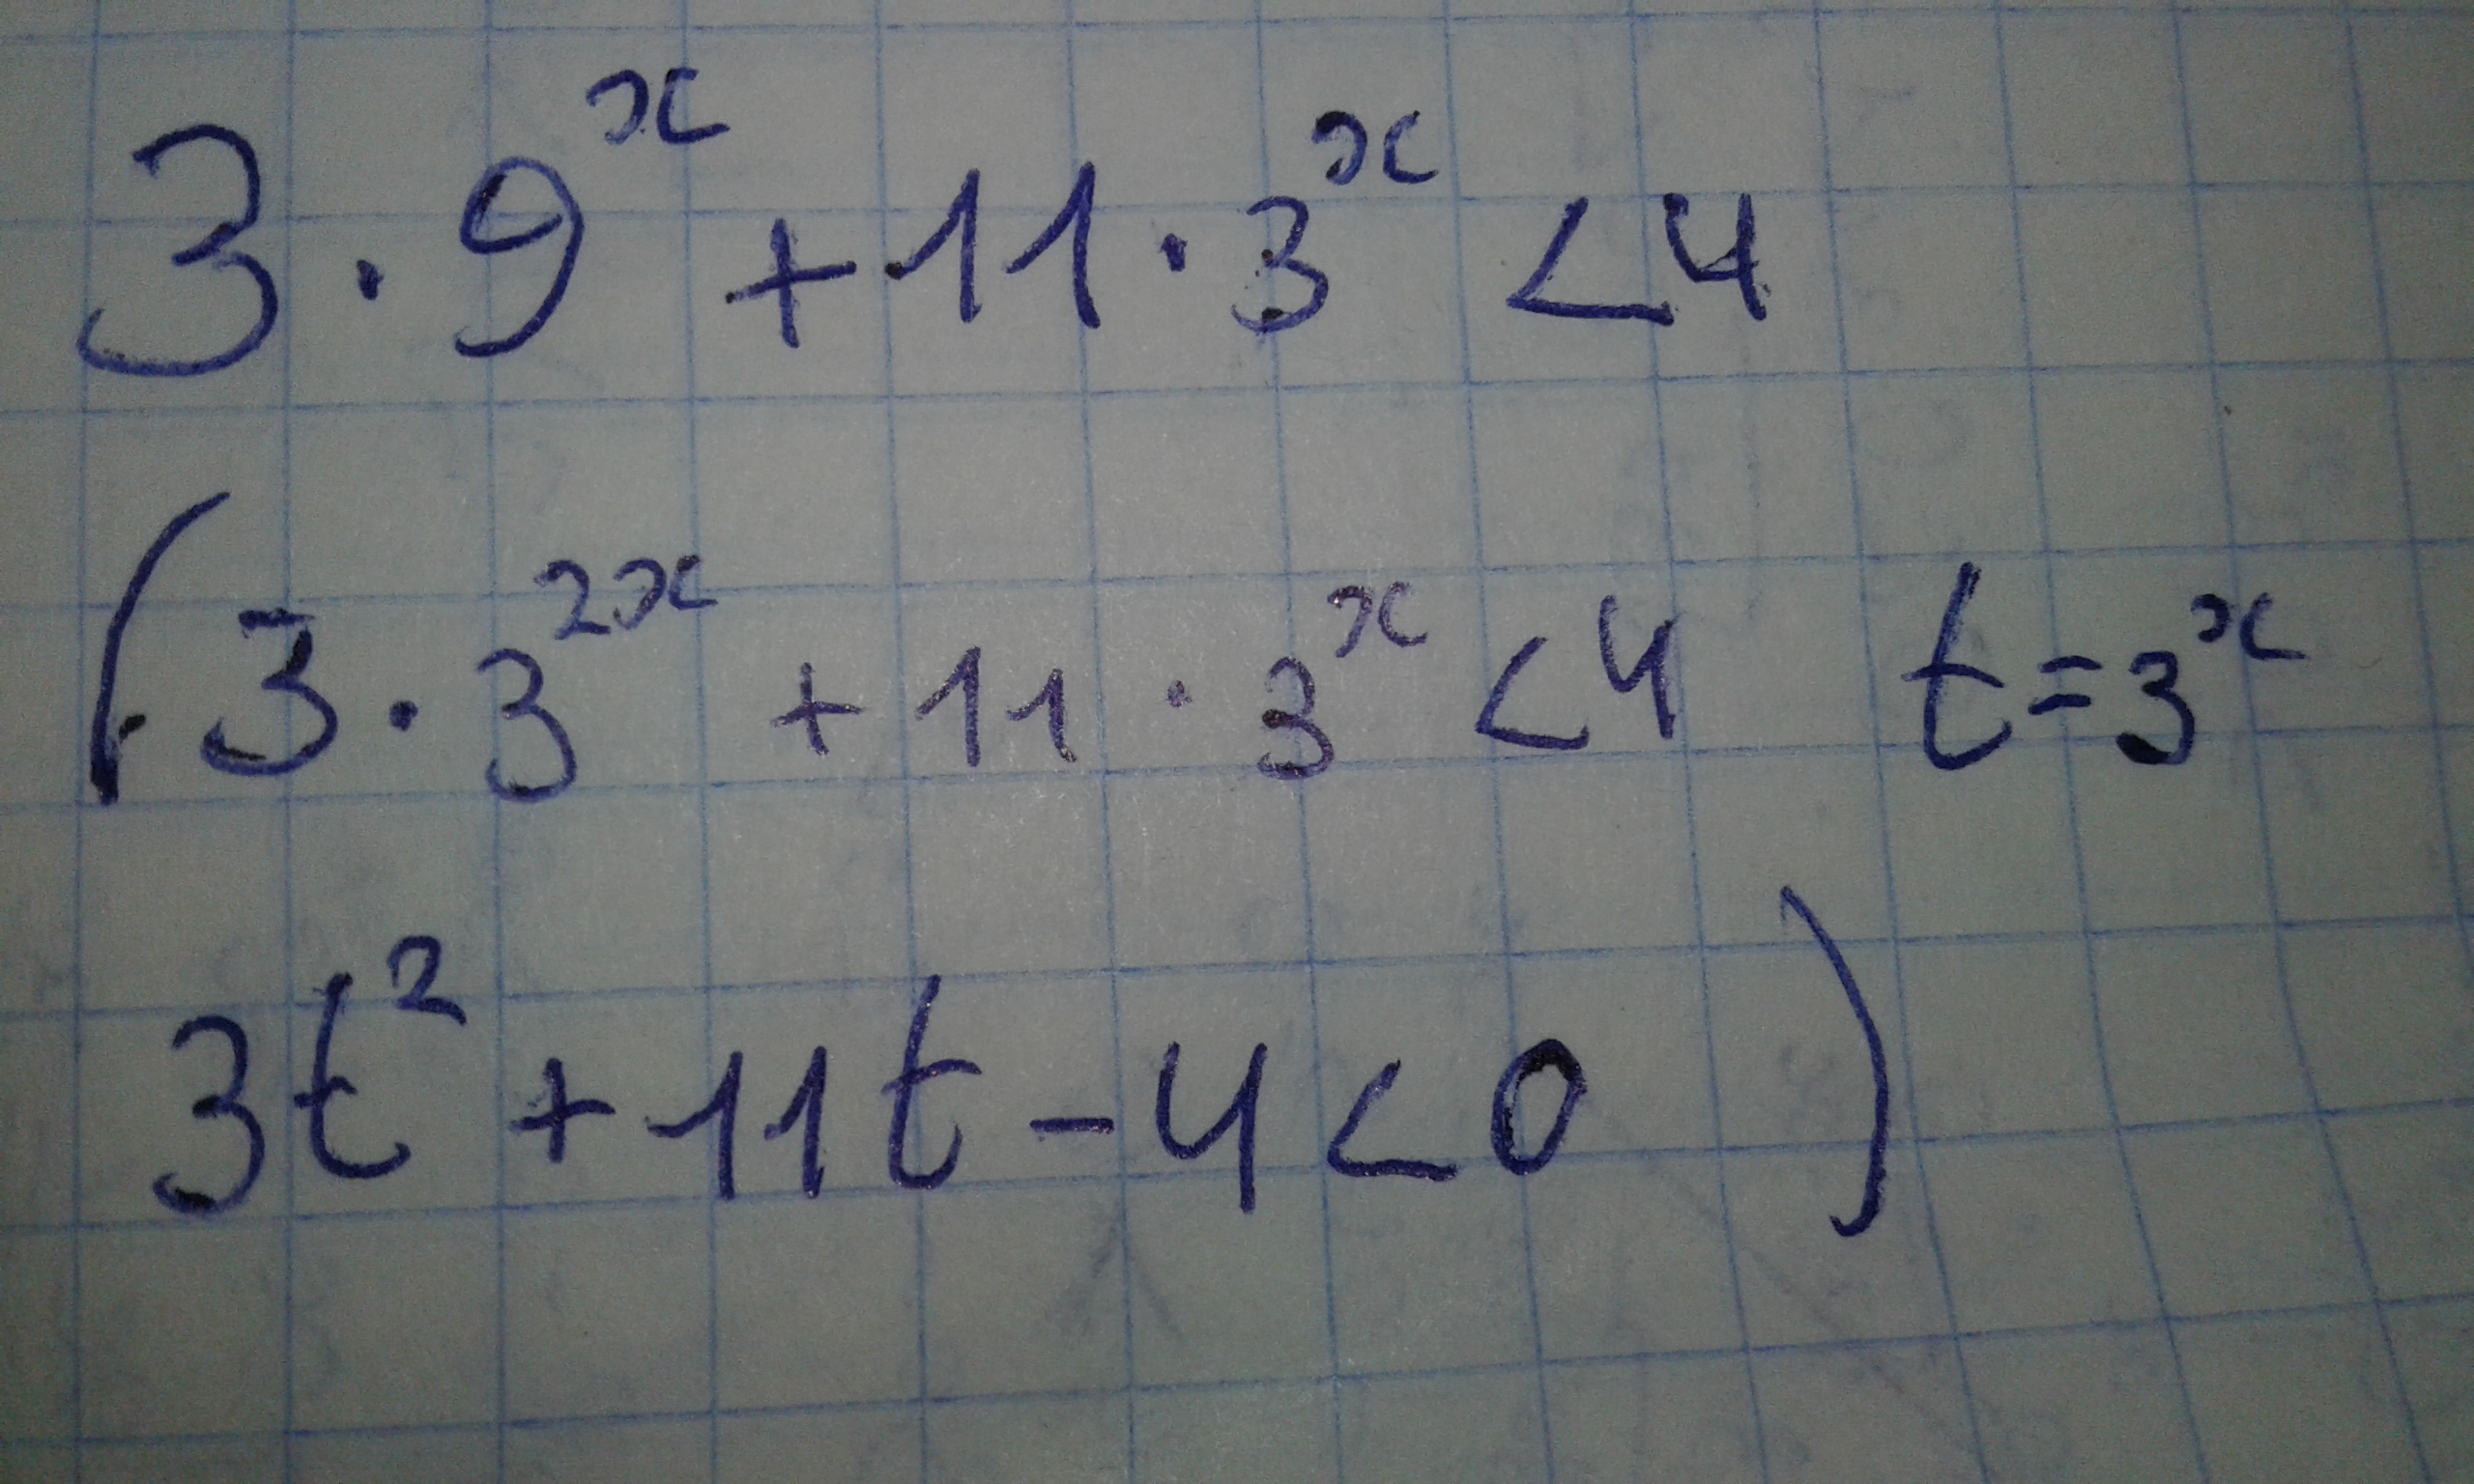 3 · 9^x + 11 · 3^x < 4
( 3 · 3^2x + 11 · 3^x < 4 t = 3^x
3t^2 + 11t - 4 < 0 )